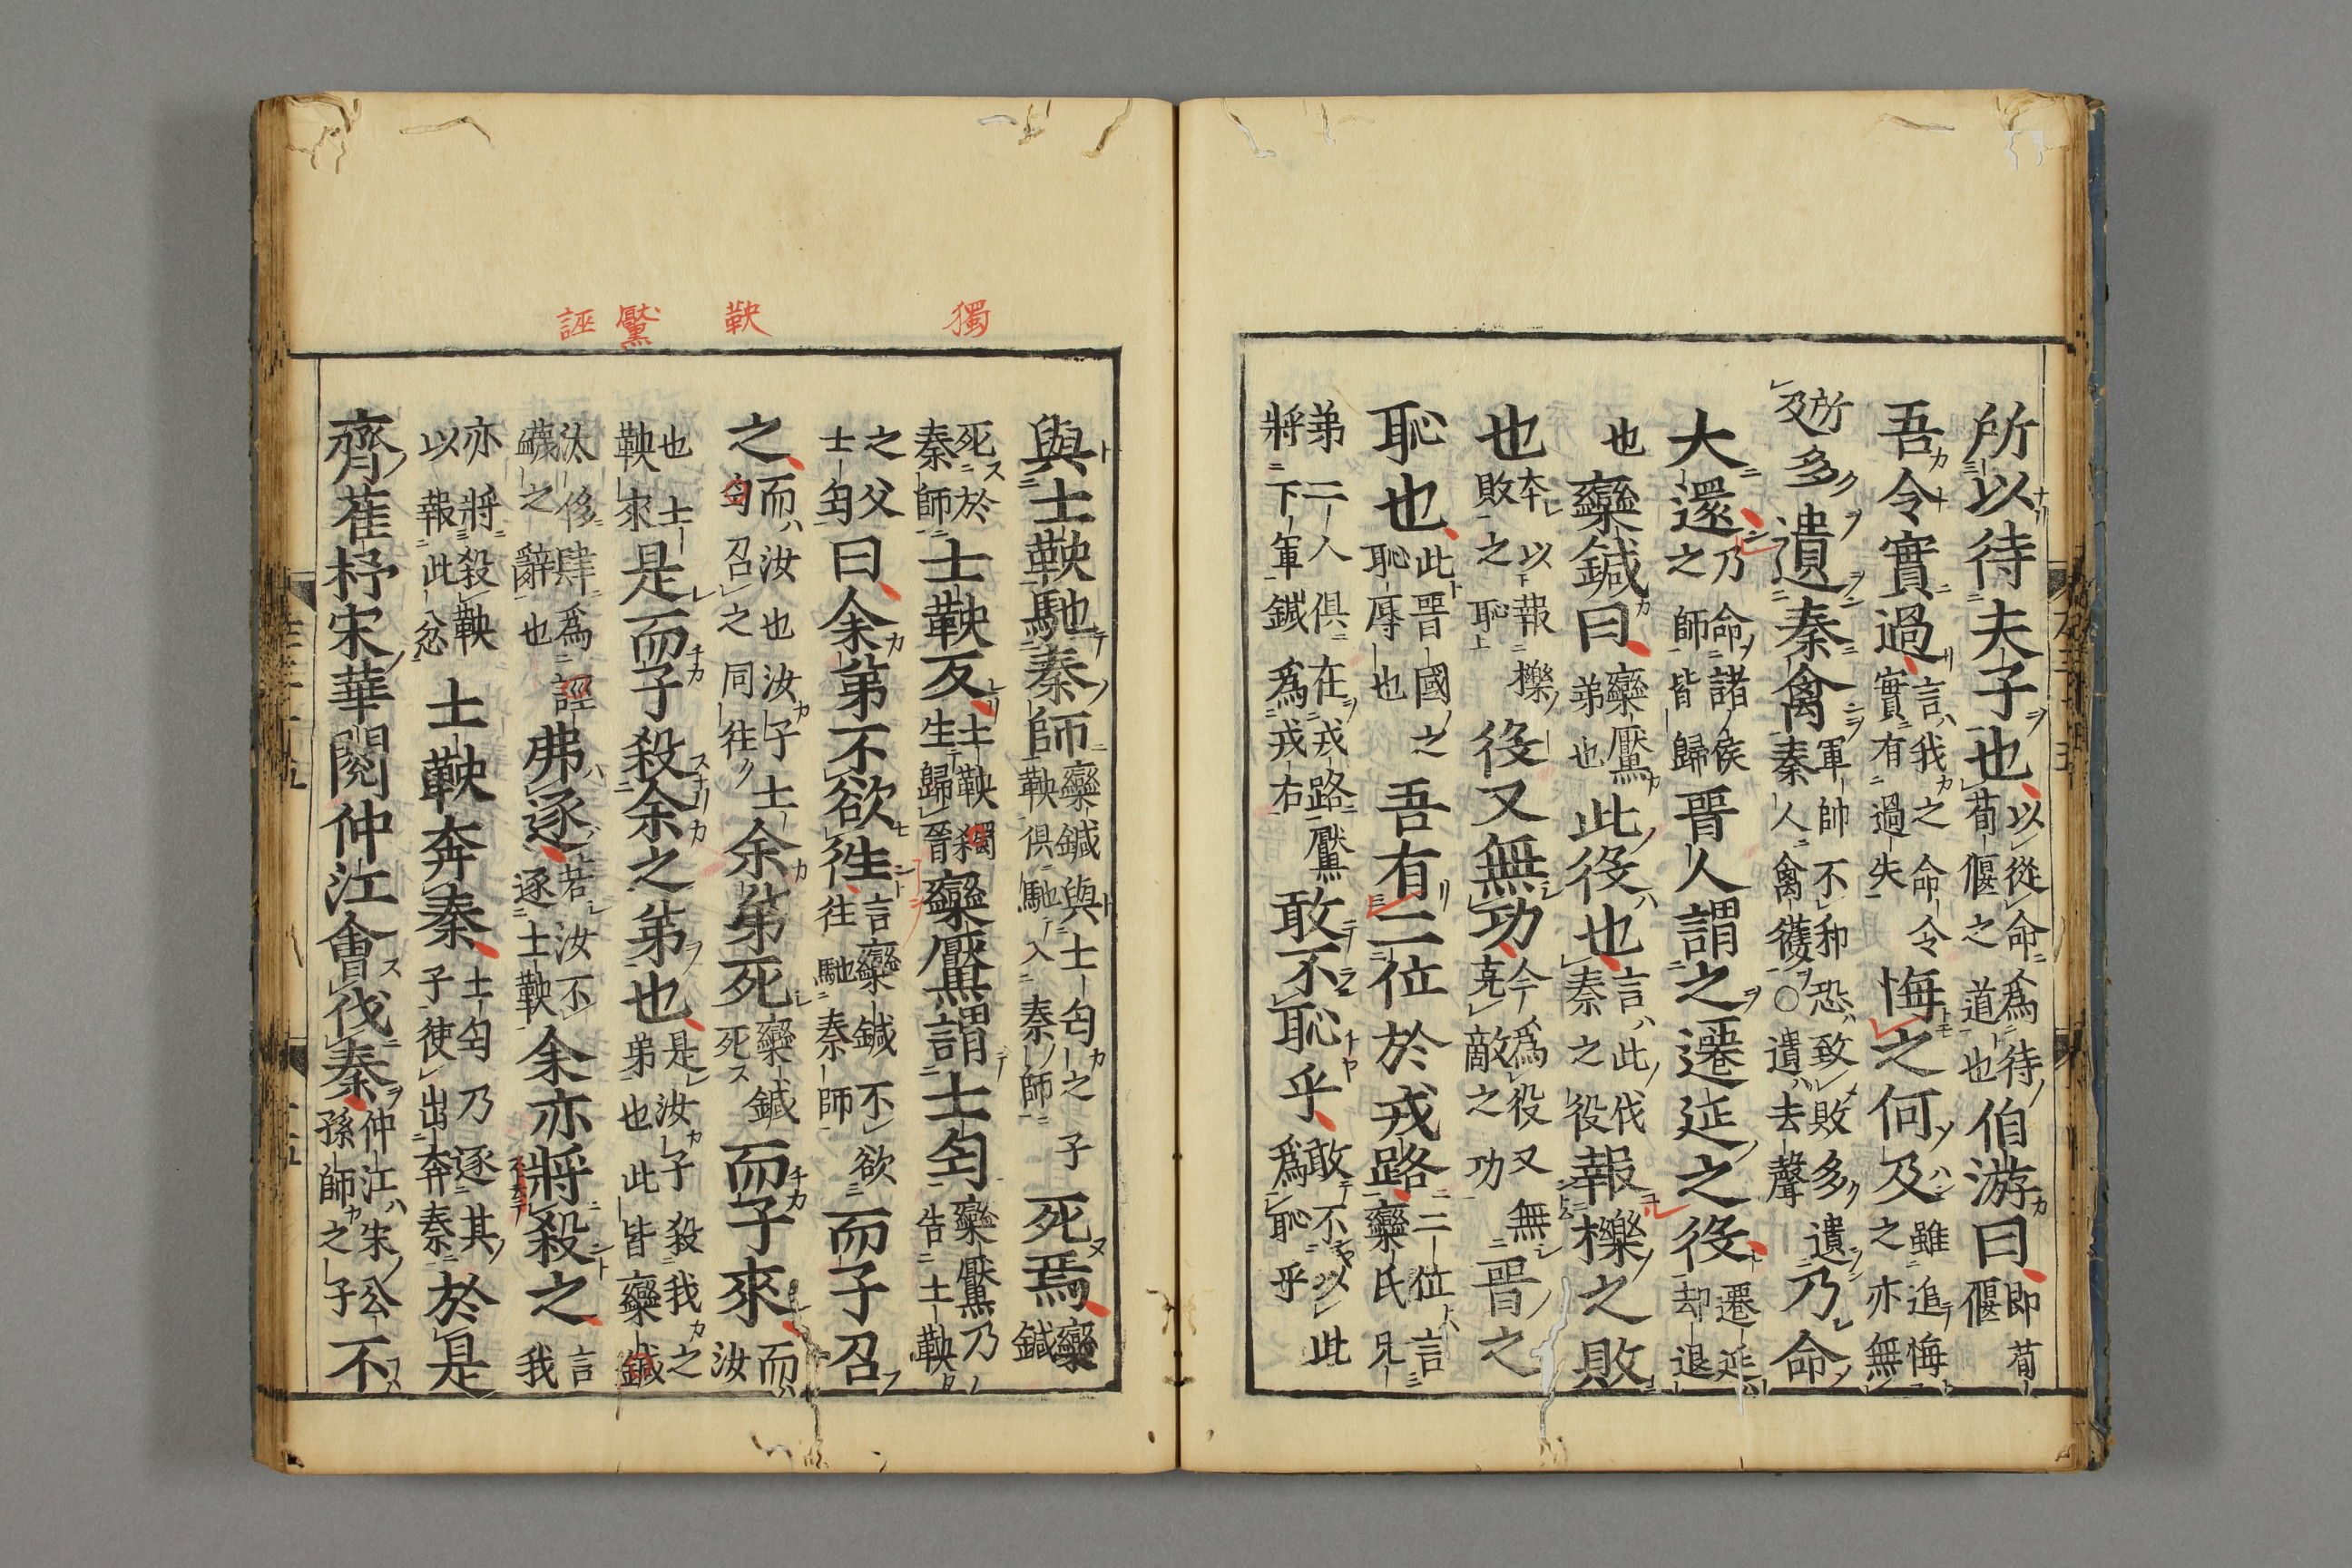 所以待夫子也以從命爲待荀偃之道也伯游曰即荀偃
吾令實過言我之命令實有過失悔之何及雖追悔之亦無
所及多遺秦禽軍帥不和恐致敗多遺秦人禽獲〇遺去聲乃命
大還乃命諸侯之師皆歸晉人謂之遷延之役遷延却退
也欒鍼曰欒黶弟也此役也言此伐秦之役報櫟之敗
也本以報櫟敗之恥役又無功今爲役又無克敵之功晉之
恥也此晉國之恥辱也吾有二位於戎路二位言欒氏兄
弟二人俱在戎路黶將下軍鍼爲戎右敢不恥乎敢不以此爲恥乎
獨
鞅
黶
誣
與士鞅馳秦師欒鍼與士匄之子鞅俱馳入秦師死焉欒鍼
死於秦師士鞅反士鞅獨生歸晉欒黶謂士匄欒黶乃告士鞅
之父士匄曰余弟不欲往言欒鍼不欲往馳秦師而子召
之而汝也汝子士匄召之同往余弟死欒鍼死而子來而汝
也士鞅來是而子殺余之弟也是汝子殺我之弟也此皆欒鍼
汰侈肆爲誣衊之辭也弗逐若汝不逐士鞅余亦將殺之言我
亦將殺鞅以報此忿士鞅奔秦士匄乃逐其子使出奔秦於是
齊崔杼宋華閱仲江會伐秦仲江宋公孫師之子不